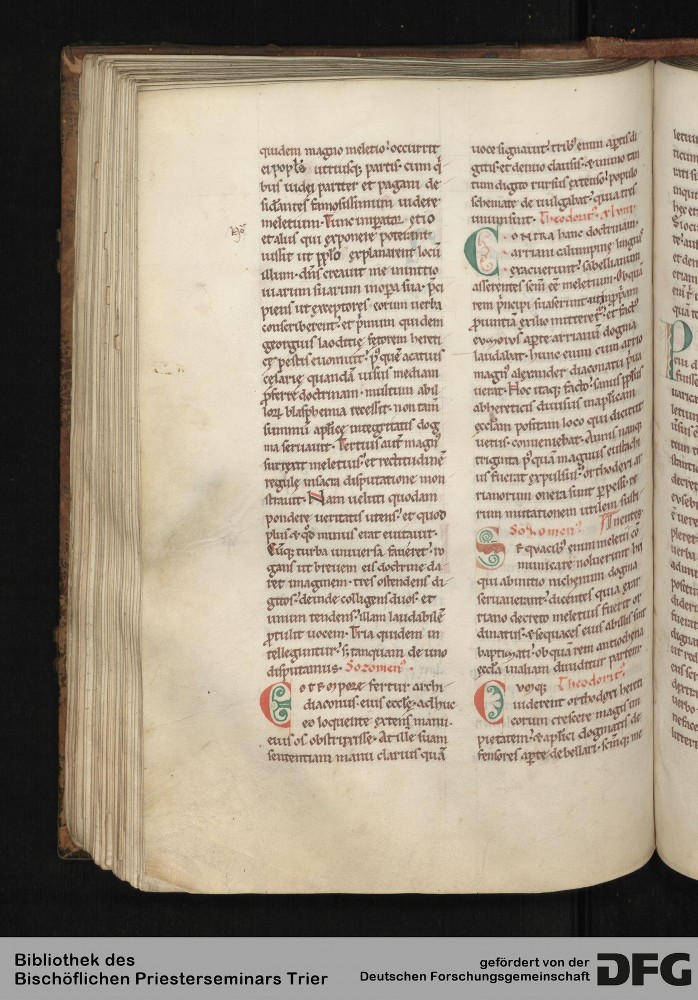 quidem magno meletio occurrit
ei popl's utriusq; partis. cum q
bus iudei pariter et pagani de
siderantes famosissimum uidere
meletium. Tunc
et alius qui exponere poterant
iussit ut pplo explanarent locu
illum. dns creauit me initio
uiarum suarum in opera sua. pci
piens ut exceptores eorum uerba
conscriberent. et primum quidem
georgius laodicie fetorem hereti
ce pestis euomuit. p' que acatius
cesarie quanda uisus mediam
pferre doctrinam. multum ab il
lorum blasphemia recessit. non tam
summu aplice integritatis dog
ma seruauit. Tertius aut magn'
surrexit meletius. et rectitudine
regule in sacra disputatione mon
strauit. Nam ueluti quodam
pondere ueritatis utens. et quod
plus. et qd minus erat euitauit.
Cuq; turba uniuersa faueret. ro
gans ut breuem eis doctrine da
ret imaginem. tres ostendens di
gitos. deinde colligens duos. et
unum tendens. illam laudabile
ptulit uocem. Tria quidem in
telleguntur. s; tanquam de uno
disputamus. Sozomen'.
Eo tempore fertur archi
diaconus eius eccle. adhuc
eo loquente extens manu.
eius os obstrixisse. At ille suam
sententiam manu clarius qua
uoce signauit. trib' enim aptis di
gitis. et denuo clausis. et uno tan
tum digito rursus extenso. populo
schemate deuulgabat. quia tres
unum sint. Theodorit'
Contra hanc doctrinam.
arriani calumpnie linguas
exacuerunt. sabellianum
asserentes seim ee meletium. Ob qua
rem principi suaserunt ut
puintia exilio mitteret. et fact'
euzoius apte arrianu dogma
laudabat. hunc enim cum arrio
magn' alexander diaconatu
uerat. Hoc itaq; facto. sanus pplus
ab hereticis diuisus in aplicam
ecclam positam loco qui dicitur
uetus. conueniebat. Annis nanq;
triginta p' quam magnus eustachi
us fuerat expulsus. orthodoxi ar
rianorum onera sunt ppessi. re
rum mutationem utilem susti
nentes.
Sozomen'.
Sequaces enim meletii co
municare noluerunt his
qui ab initio nichenum dogma
seruauerant. dicentes quia
riano decreto meletius fuerit or
dinatus. et sequaces eius ab illis sint
baptizati. ob qua rem antiochena
eccla in aliam diuiditur partem.
Theodorit'.
Cumq;
uiderent orthodoxi
eorum crescere magis im
pietatem. et aplici dogmatis de
fensores apte debellari.
Bibliothek des
Bischöflichen Priesterseminars Trier
gefördert von der
Deutschen Forschungsgemeinschaft
DFG